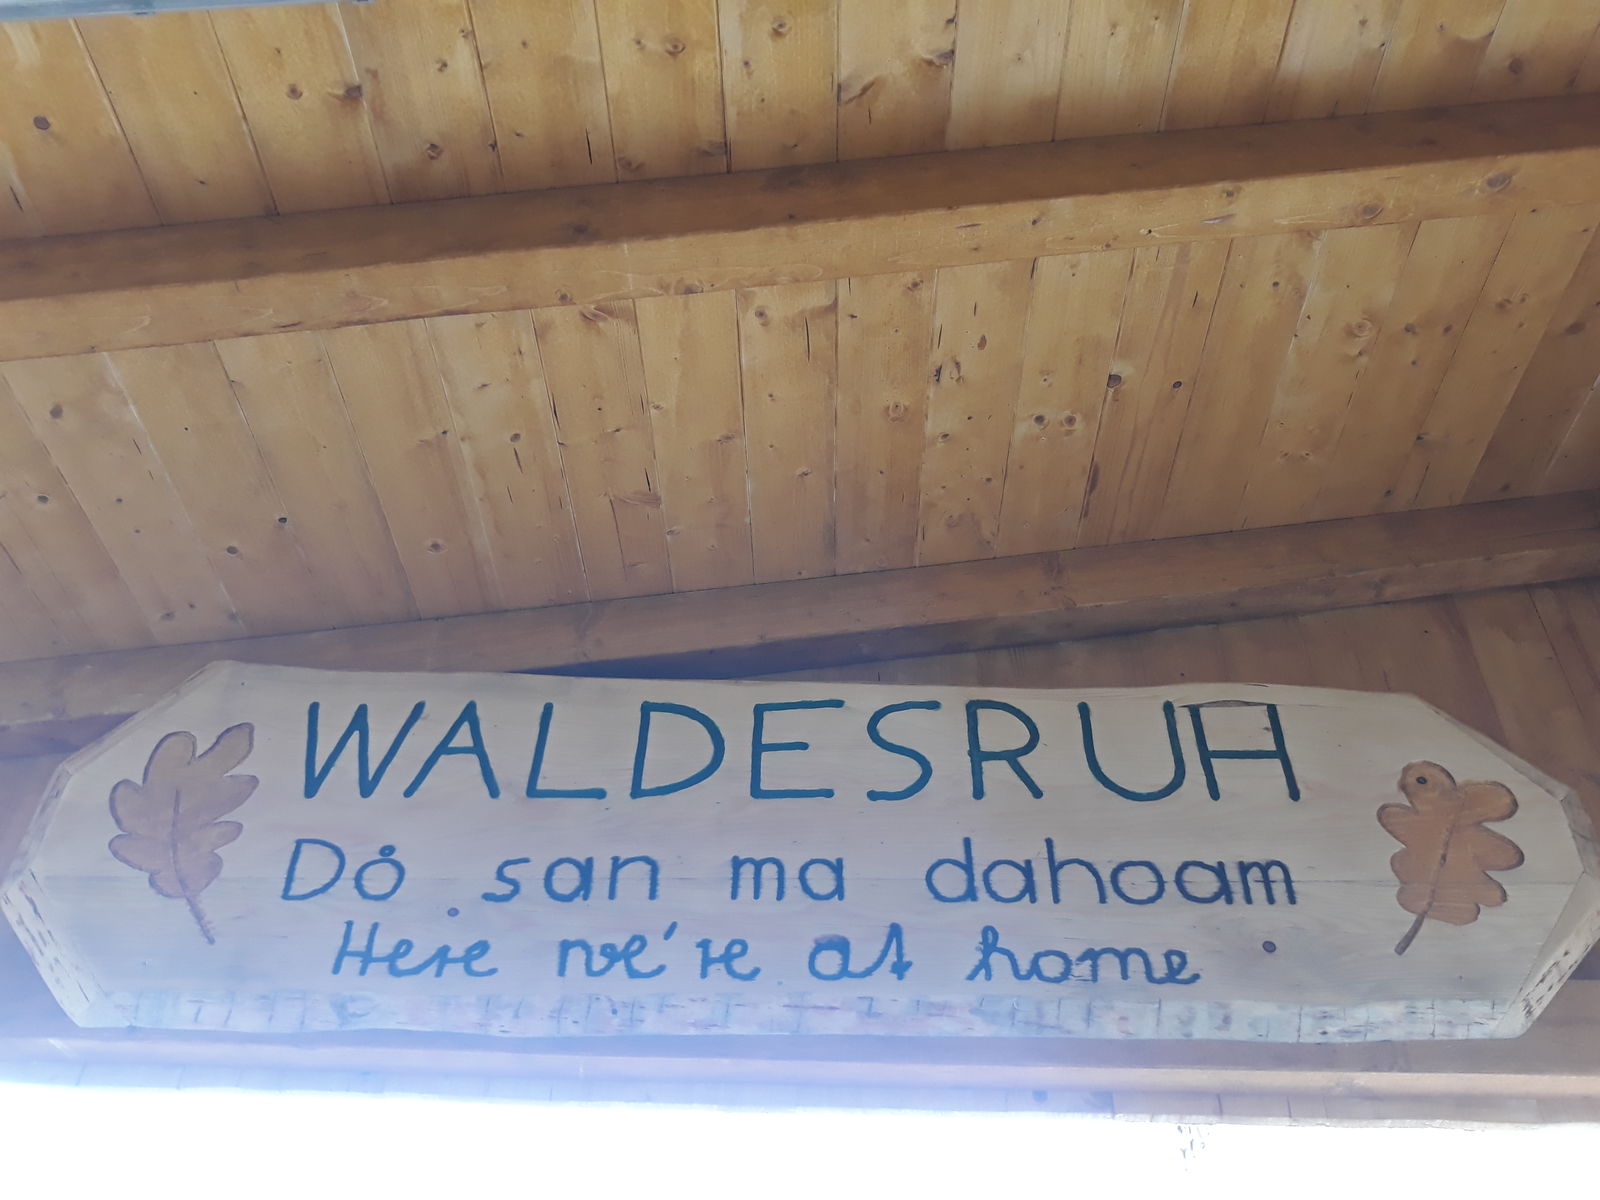 WALDESRUH
Då san ma dahoam
Here we're at home